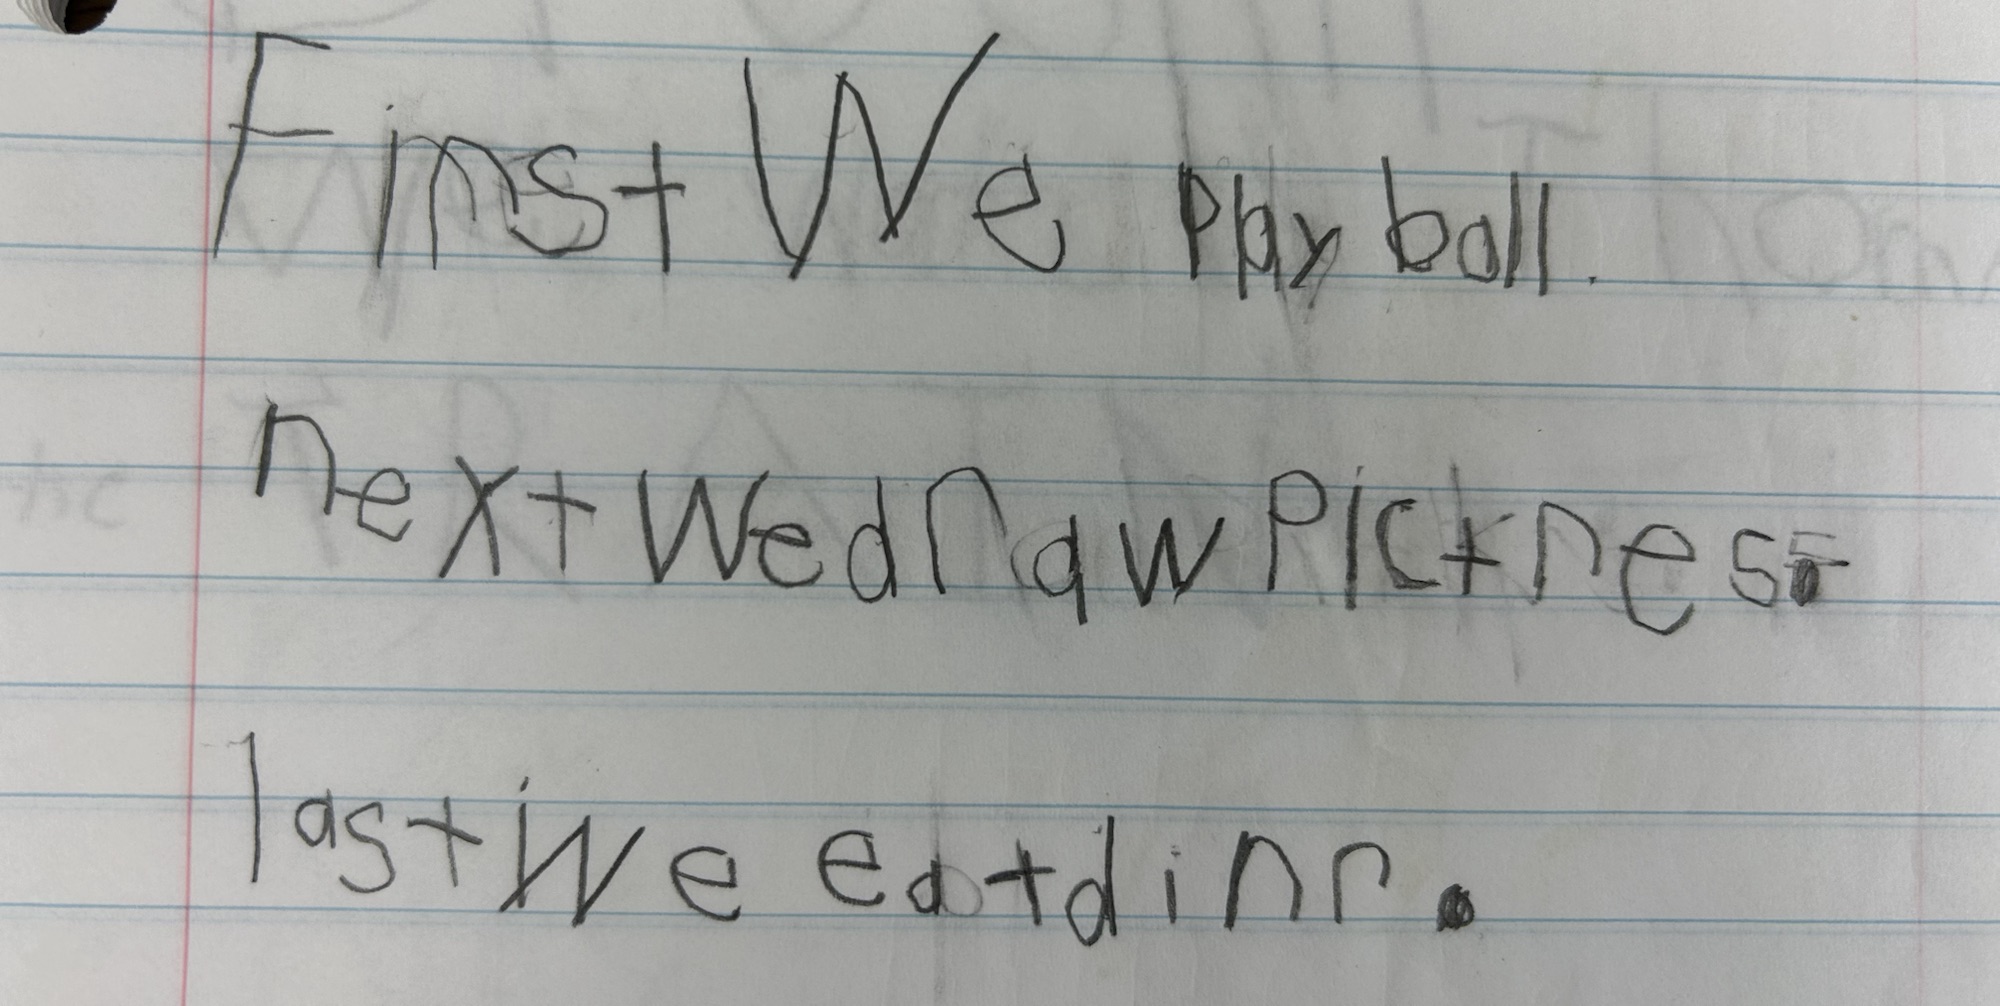 First We play ball.
next we draw Pictres.
last We eat dinr.